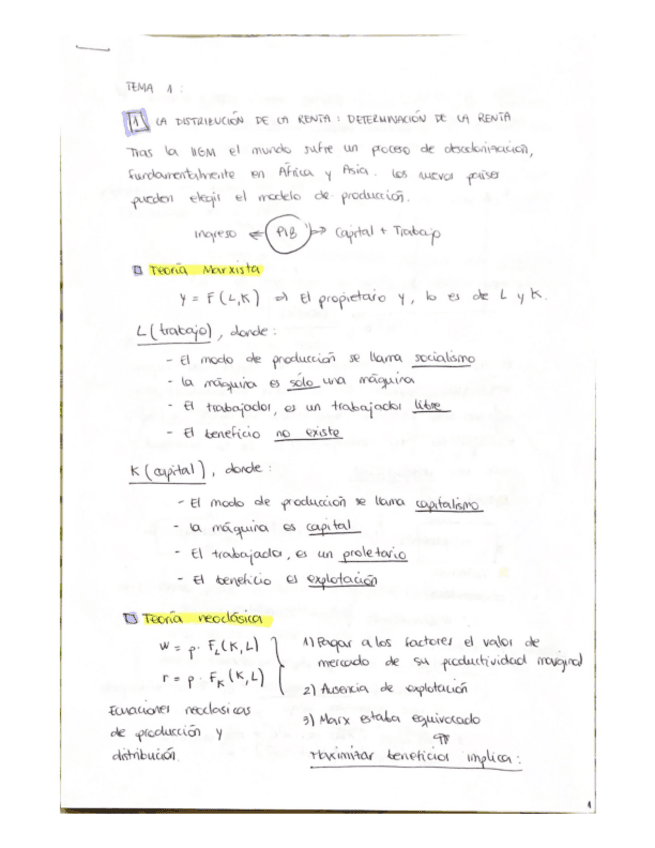 TEMA 1:
1 LA DISTRIBUCIÓN DE LA RENTA: DETERMINACIÓN DE LA RENTA
Tras la IIGM el mundo sufre un proceso de descolonización,
fundamentalmente en África y Asia. Los nuevos países
pueden elegir el modelo de producción.
Ingreso ← PIB → Capital + Trabajo
Teoría Marxista
Y = F(L,K) ⇒ El propietario Y, lo es de L y K.
L (trabajo), donde:
- El modo de producción se llama socialismo
- La máquina es sólo una máquina
- El trabajador, es un trabajador libre
- El beneficio no existe
K (capital), donde:
- El modo de producción se llama capitalismo
- La máquina es capital
- El trabajador, es un proletario
- El beneficio es explotación
Teoría neoclásica
w = p · FL (K,L)
r = p · FK (K,L)
Ecuaciones neoclasicas
de producción y
distribución.
1) Pagar a los factores el valor de
mercado de su productividad marginal
2) Ausencia de explotación
3) Marx estaba equivocado
Maximizar beneficios implica:
1